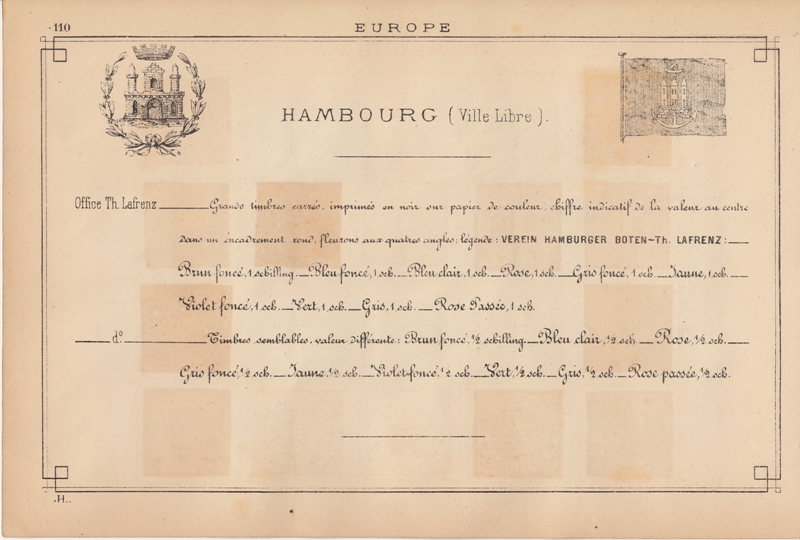 110
EUROPE
HAMBOURG (Ville Libre).
Office Th. Lafrenz Grands timbres carrés, imprimés en noir sur papier de couleur, chiffre indicatif de la valeur au centre
dans un encadrement rond, fleurons aux quatres angles; légende: VEREIN HAMBURGER BOTEN-TH. LAFRENZ:
Brun foncé, 1 schilling. Bleu foncé, 1 sch. Bleu clair, 1 sch. Rose, 1 sch. Gris foncé, 1 sch. Jaune, 1 sch.
Violet foncé, 1 sch. Vert, 1 sch. Gris, 1 sch. Rose Passée, 1 sch.
do Timbres semblables, valeur différente: Brun foncé, ½ schilling. Bleu clair, ½ sch Rose, ½ sch.
Gris foncé, ½ sch. Jaune, ½ sch. Violet foncé, ½ sch. Vert, ½ sch. Gris, ½ sch. Rose passée, ½ sch.
.H..